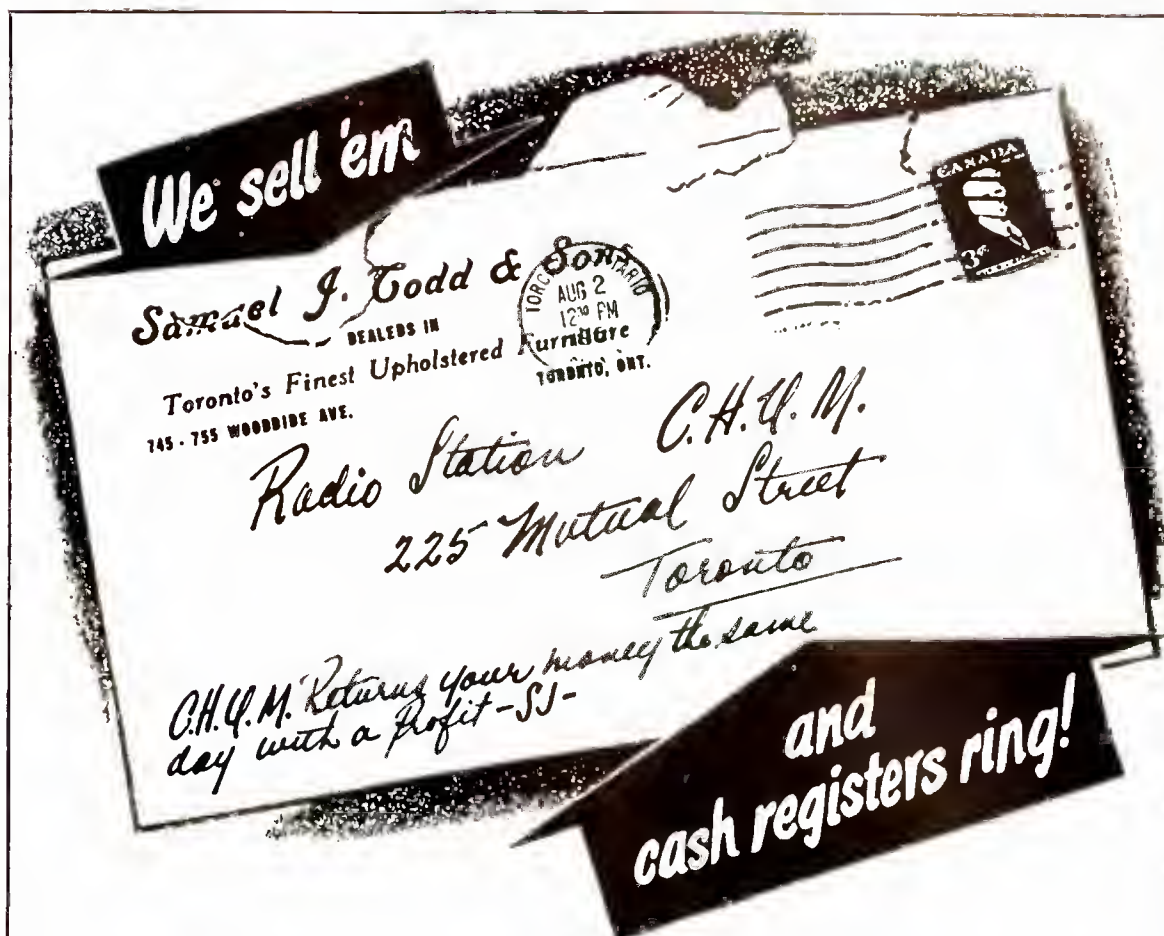 We sell 'em
Samuel J. Todd & Sons
DEALERS IN
Toronto's Finest Upholstered Furniture
745 - 755 WOODBINE AVE.
TORONTO, ONT.
TORONTO ONTARIO
AUG 2
12 30 PM
CANADA
3¢
Radio Station C.H.U.M.
225 Mutual Street
Toronto
C.H.U.M. Returns your money the same
day with a Profit -SJ-
and
cash registers ring!